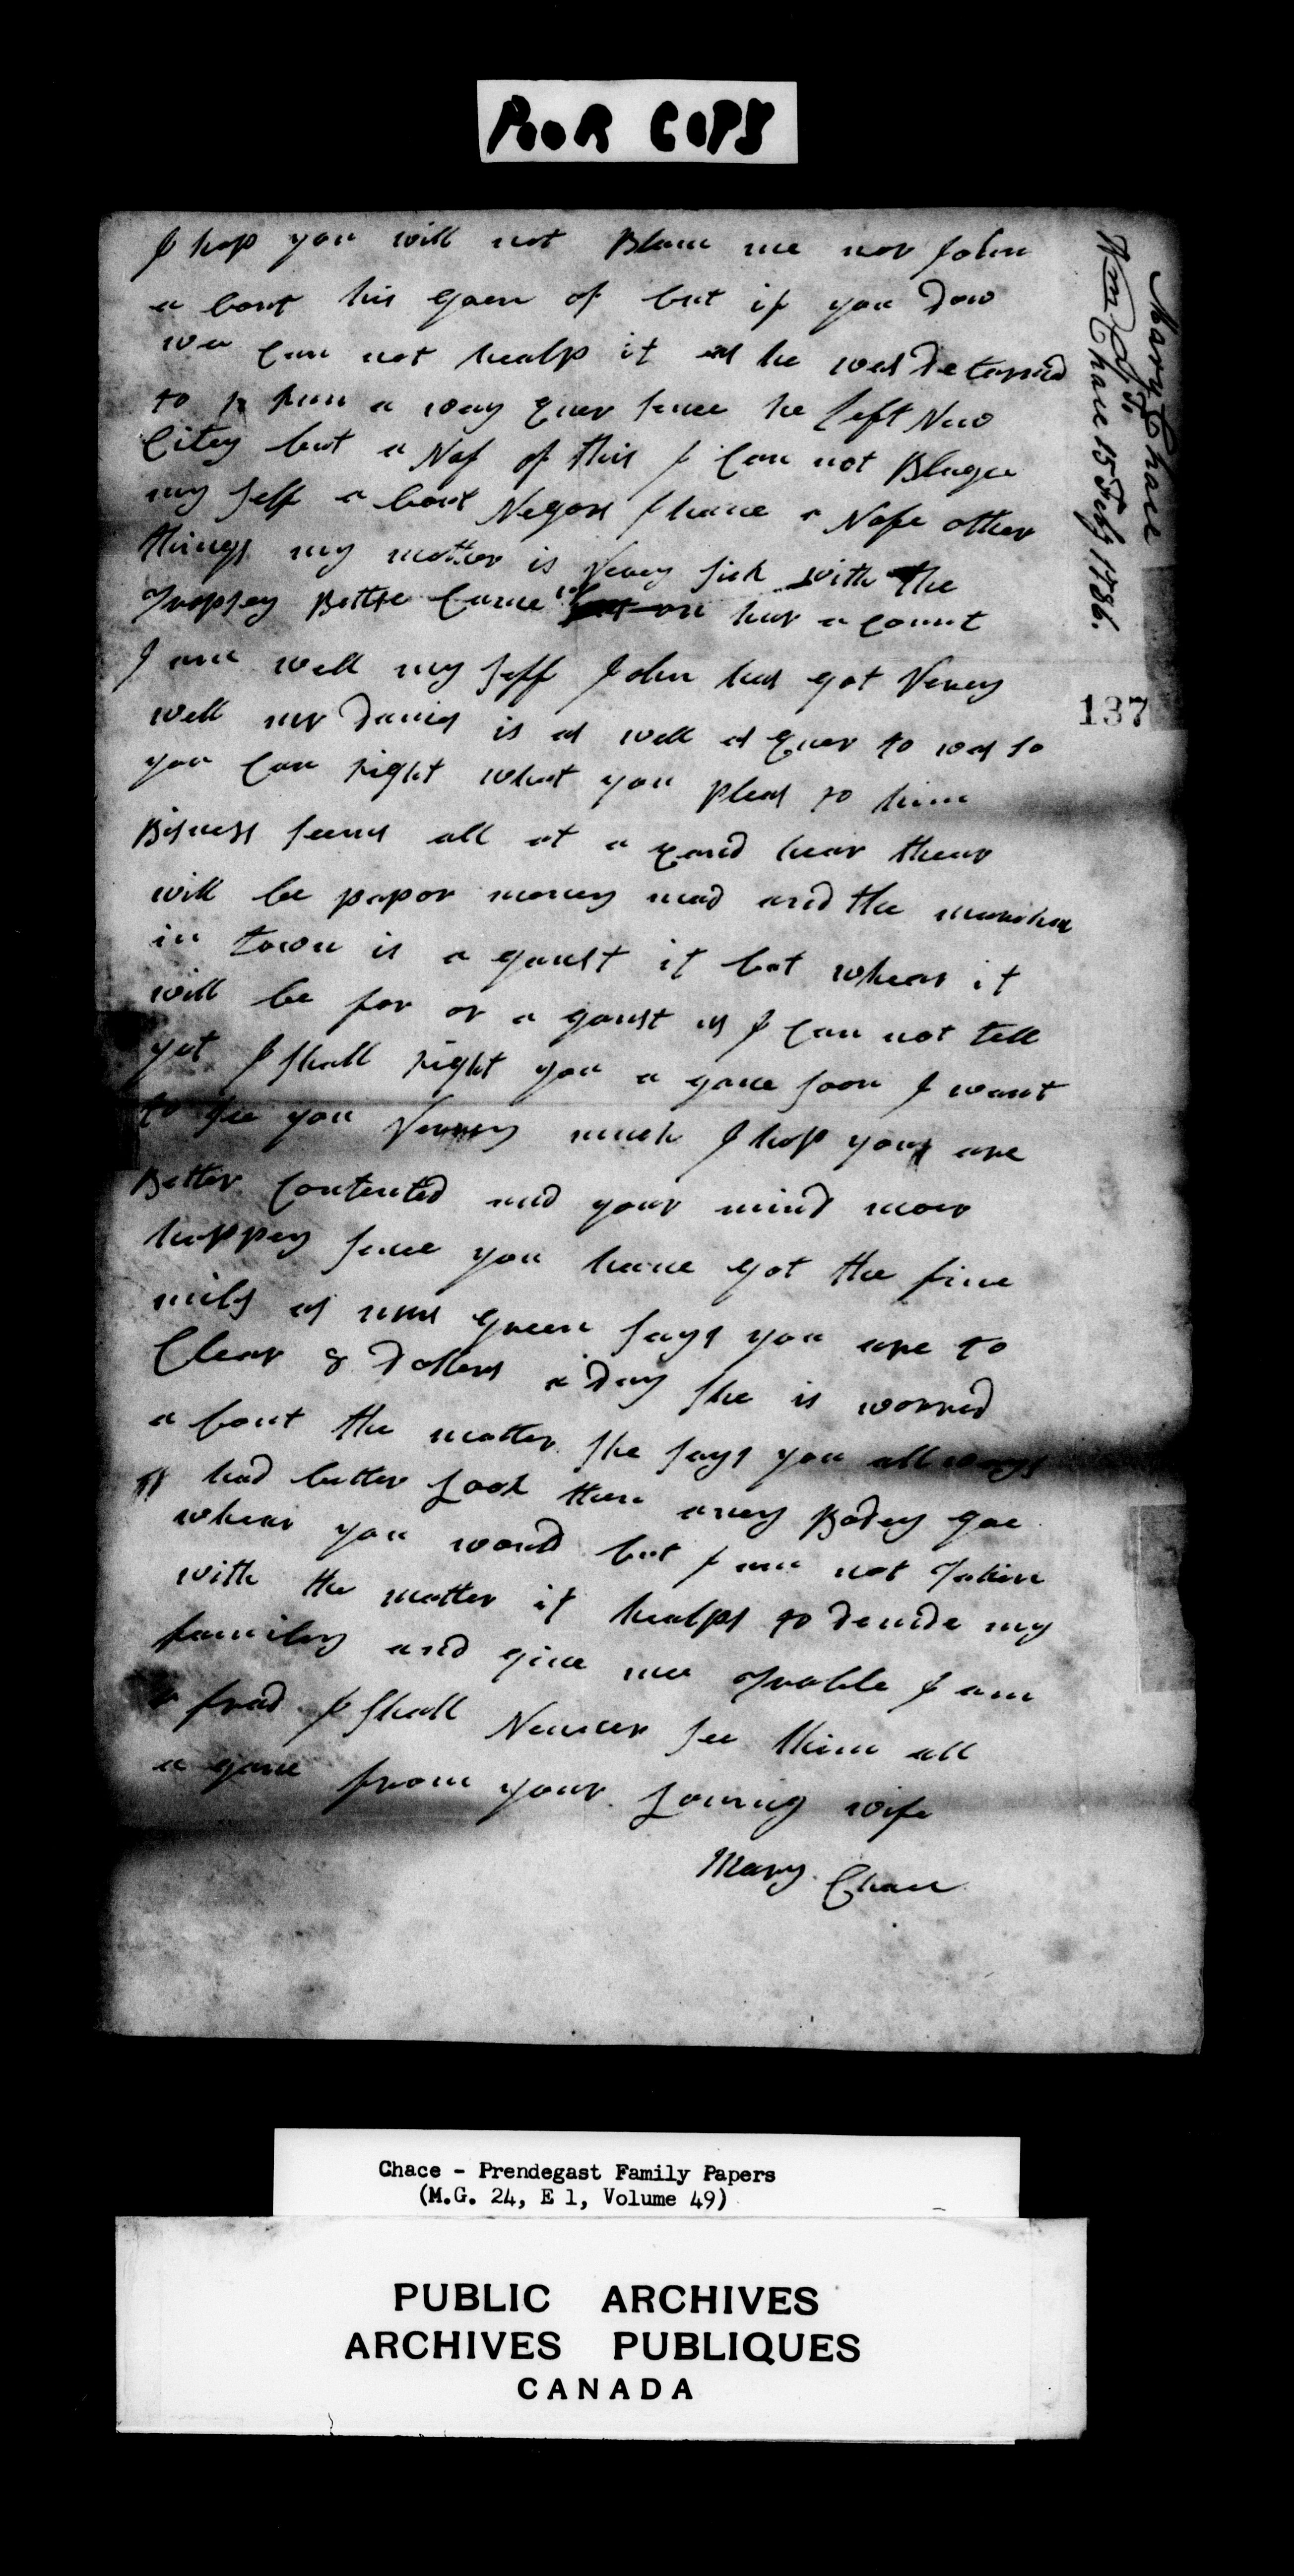 POOR COPY
I hop you will not Blam me nor John
a bout his goen of but if you Dow
wee Can not healp it as he was Detarmd
to run a way Ever sence he left New
Citey but a Nof of this I Can not
my self a bout Negors I have a Nofe other
things my mother is Verey sick with the
Dropsey Bettse Came on har a Count
I am well my self John has got Verey
well mr Daves is as well as Ever to was so
you Can right what you pleas to him
Bisness seems all at a eand hear thear
will be papor money mad and the
in town is a ganst it but whear it
will be for or a ganst us I Can not tell
yet I shall right you a gane soon I want
to see you Verrey much I hop you are
Better Contented and your mind mor
happey sence you have got the fine
mils as mrs Green says you are to
Clear 8 Dollers a Day she is worred
a bout the matter she says you all ways
had better Look then aney Bodey goe
whear you woud but I am not Taken
with the matter it healps to devide my
familey and give me Troble I am
a frad I shall Neaver see them all
a gane from your Loving wife
Mary Chace
Mary Chace
Wm Chace 15 Feby 1786.
137
Chace - Prendegast Family Papers
(M.G. 24, E 1, Volume 49)
PUBLIC ARCHIVES
ARCHIVES PUBLIQUES
CANADA